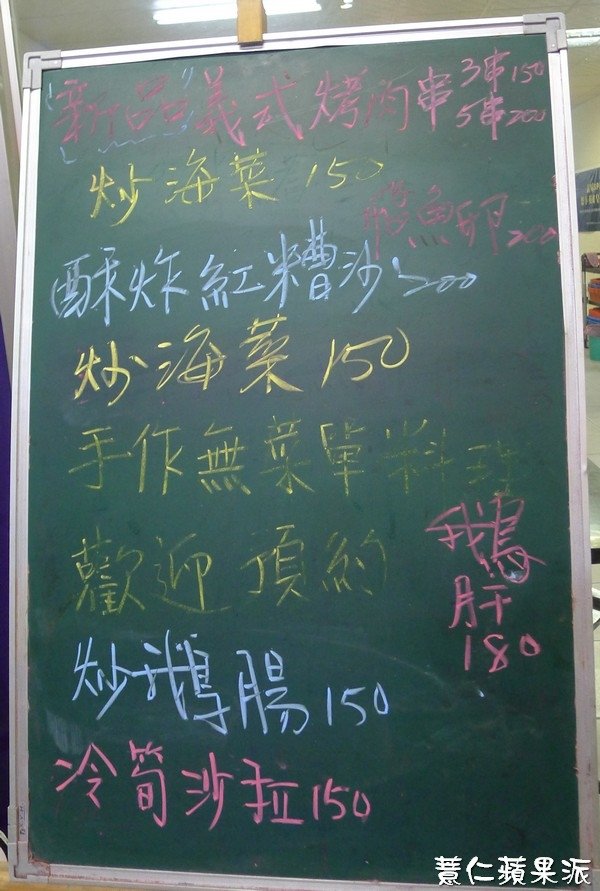 新品義式烤肉串 3串150
5串200
炒海菜 150
魚卵 200
酥炸紅糟沙 200
炒海菜 150
手作無菜單料理
歡迎 預約
鵝肝
180
炒鵝腸 150
冷筍沙拉 150
薏仁蘋果派